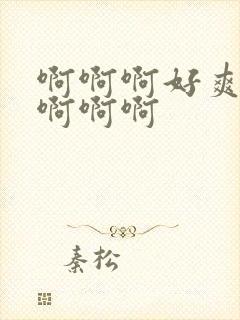 啊啊啊好爽
啊啊啊
秦松